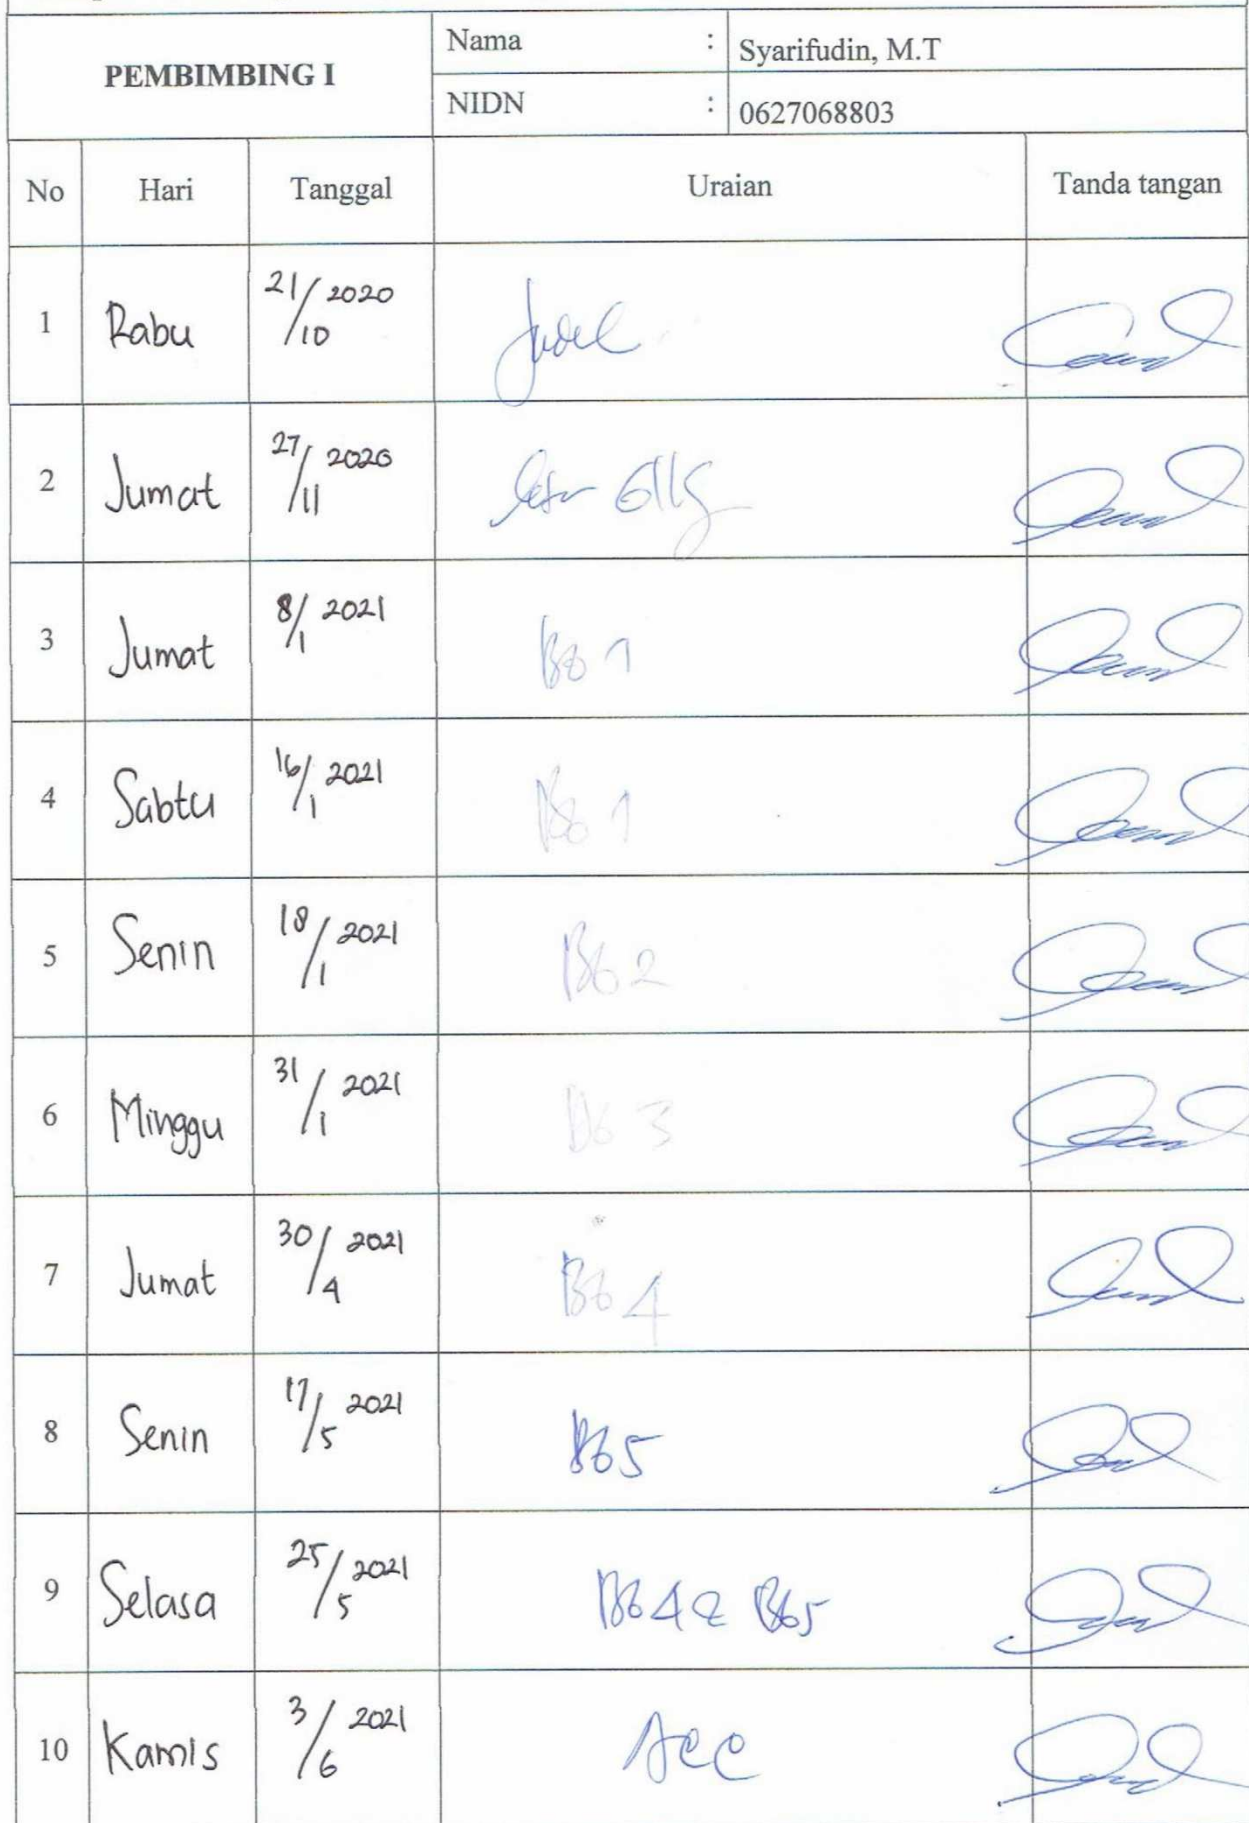 PEMBIMBING I
Nama : Syarifudin, M.T
NIDN : 0627068803
No Hari Tanggal Uraian Tanda tangan
1 Rabu 21/10 2020 Judul
2 Jumat 27/11 2020
3 Jumat 8/1 2021 Bab 1
4 Sabtu 16/1 2021 Bab 1
5 Senin 18/1 2021 Bab 2
6 Minggu 31/1 2021 Bab 3
7 Jumat 30/4 2021 Bab 4
8 Senin 17/5 2021 Bab 5
9 Selasa 25/5 2021 Bab 4 & Bab 5
10 Kamis 3/6 2021 Acc